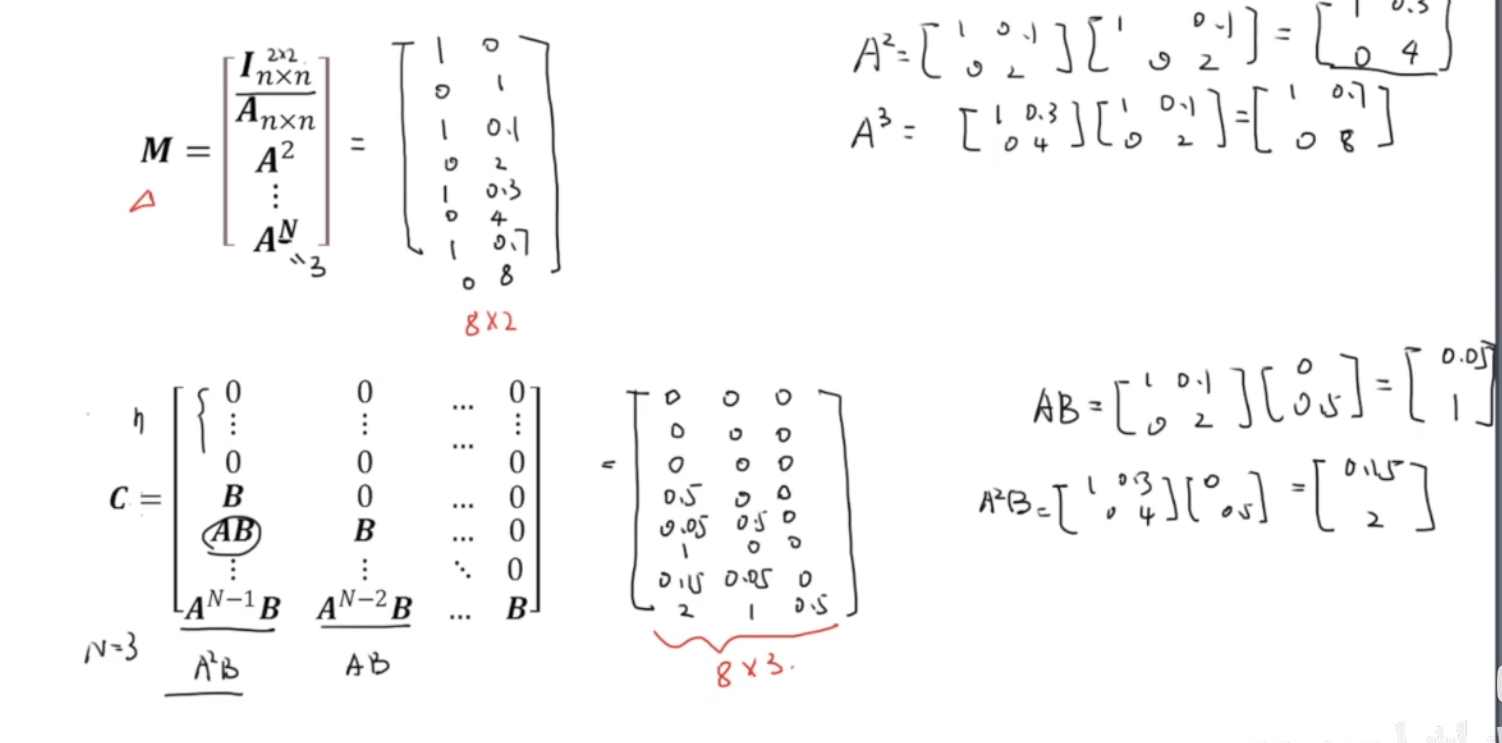 M = [ I n×n 2×2 = [ 1 0
A n×n 0 1
A² 1 0.1
⋮ 0 2
A^N ] 1 0.3
"3 0 4
△ 1 0.7
0 8 ]
8×2
A² = [ 1 0.1 0 2 ] [ 1 0.1 0 2 ] = [ 1 0.3 0 4 ]
A³ = [ 1 0.3 0 4 ] [ 1 0.1 0 2 ] = [ 1 0.7 0 8 ]
n { 0 0 ... 0
⋮ ⋮ ... ⋮
0 0 0
C = B 0 ... 0
AB B ... 0
⋮ ⋮ ⋱ 0
A^N−1 B A^N−2 B ... B
N=3 A²B AB
= [ 0 0 0
0 0 0
0 0 0
0.5 0 0
0.05 0.5 0
1 0 0
0.15 0.05 0
2 1 0.5 ]
8×3.
AB = [ 1 0.1 0 2 ] [ 0 0.5 ] = [ 0.05 1 ]
A²B = [ 1 0.3 0 4 ] [ 0 0.5 ] = [ 0.15 2 ]